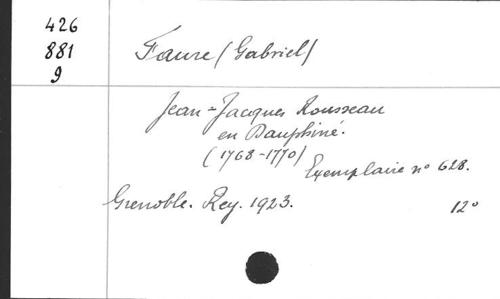 426
881
9
Faure (Gabriel)
Jean-Jacques Rousseau
en Dauphiné.
(1768-1770)
Exemplaire nº 628.
Grenoble. Rey. 1923.
12º